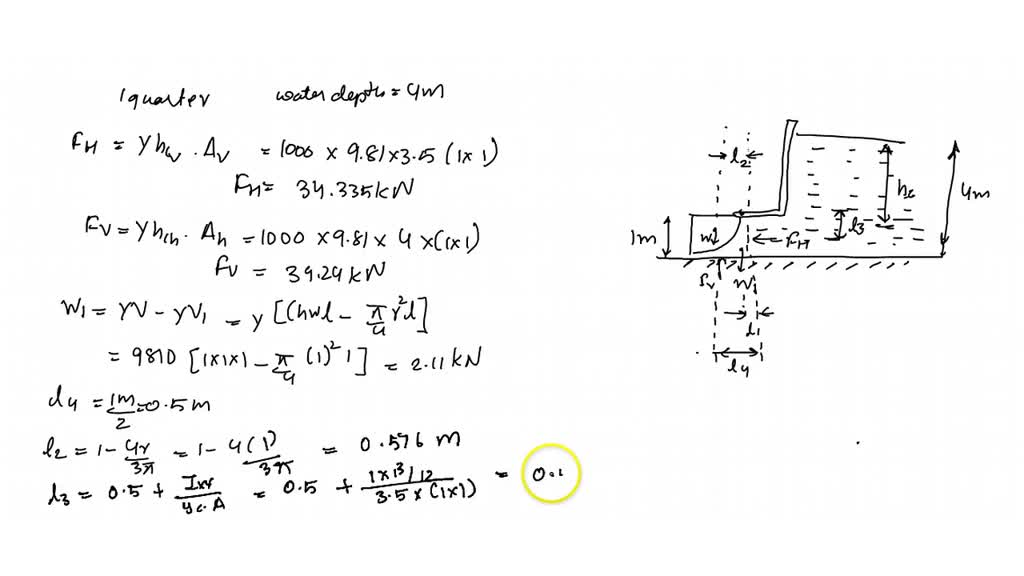 1 quarter water depth = 4m
FH = γ hcv . Av = 1000 × 9.81 × 3.5 (1×1)
FH = 34.335 kN
FV = γ hch . Ah = 1000 × 9.81 × 4 × (1×1)
FV = 39.24 kN
W1 = γV - γV1 = γ [(hwl - π/4 r²l]
= 9810 [1×1×1 - π/4 (1)² 1] = 2.11 kN
d4 = 1m/2 = 0.5 m
l2 = 1 - 4r/3π = 1 - 4(1)/3π = 0.576 m
d3 = 0.5 + Ixx/yc.A = 0.5 + 1×1³/12 / 3.5 × (1×1) = 0.
l2
hc
4m
l3
1m
W
FH
Fv
W1
d1
l4